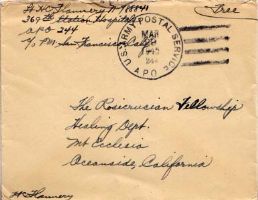 H.C. Flannery
369th Station Hospital
APO 244
c/o P.M. San Francisco Calif.
Free
U.S. ARMY POSTAL SERVICE
MAR
A.P.O.
The Rosicrucian Fellowship
Healing Dept.
Mt Ecclesia
Oceanside, California
HC Flannery